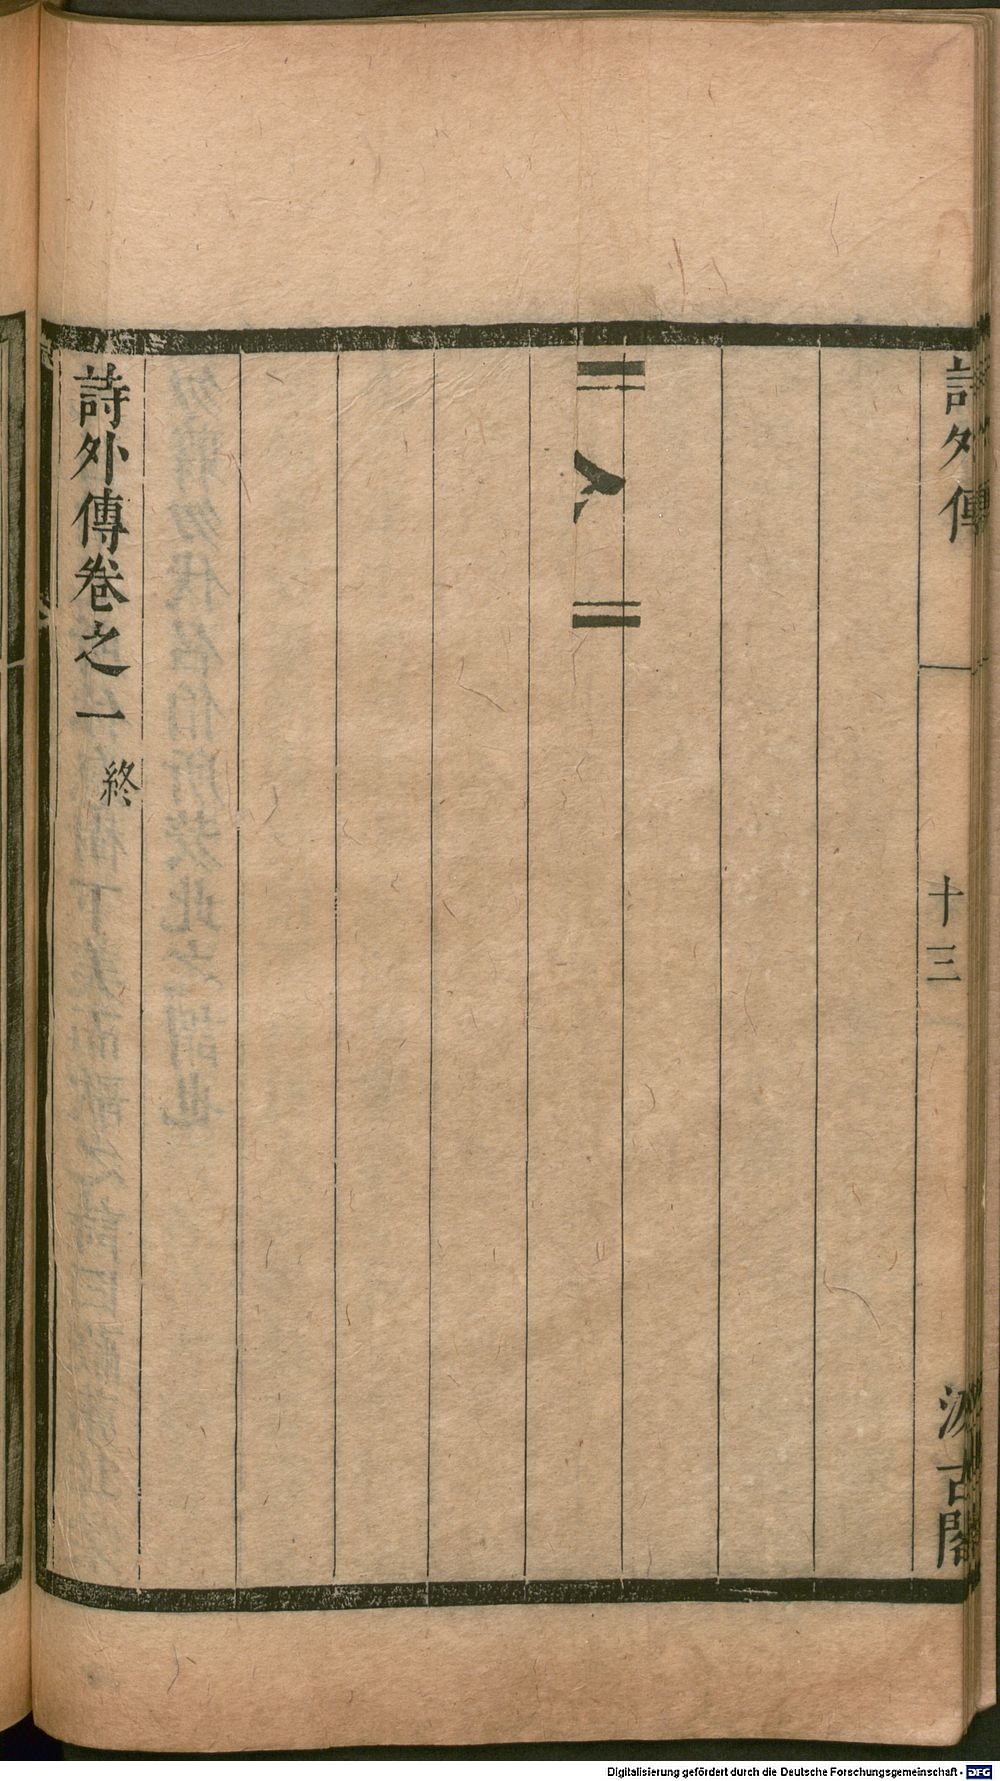 詩外傳
十三
汲古閣
詩外傳卷之一
終
Digitalisierung gefördert durch die Deutsche Forschungsgemeinschaft - DFG